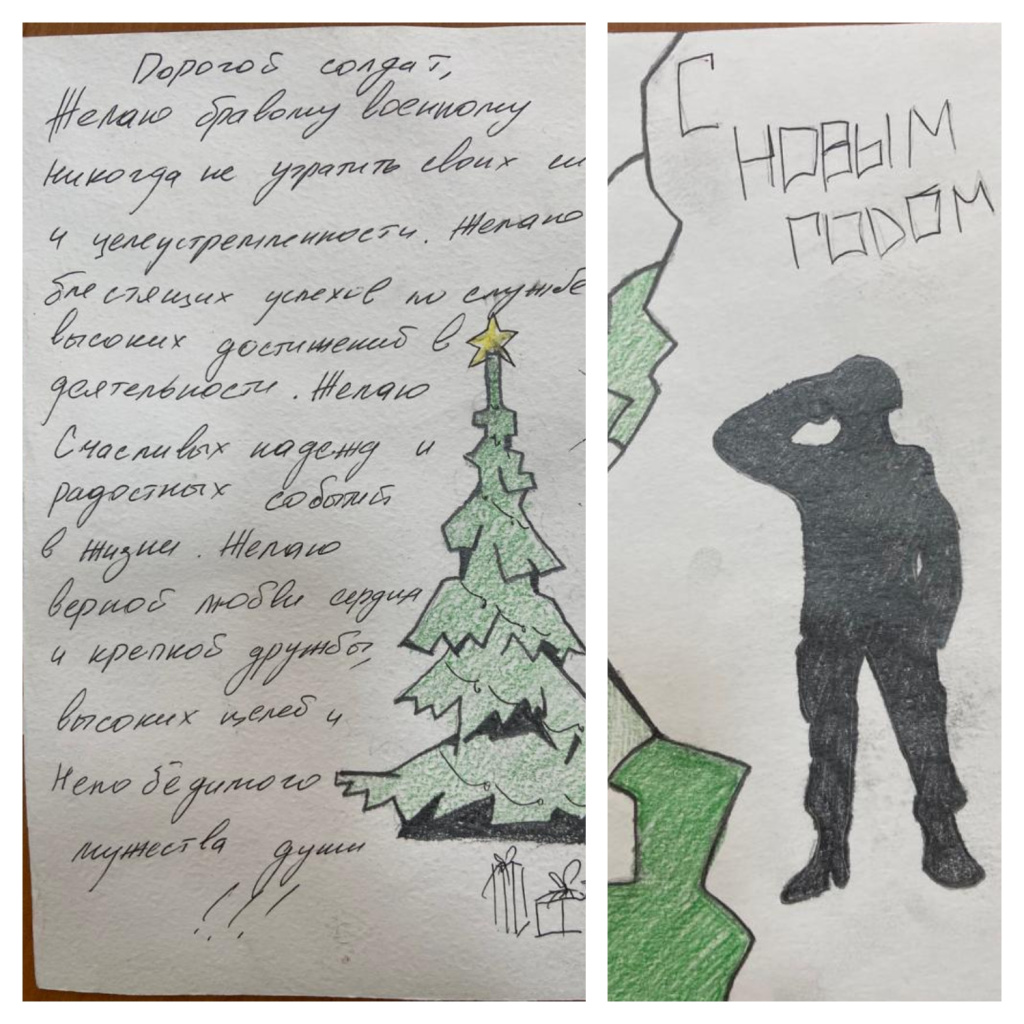 Дорогой солдат,
Желаю бравому военному
никогда не утратить своих си
и целеустремленности. Желаю
блестящих успехов по службе
высоких достижений в
деятельности. Желаю
Счасливых надежд и
радостных событий
в жизни. Желаю
верной любви сердца
и крепкой дружбы,
высоких целей и
Непобедимого
мужества души
!!!
С
НОВЫМ
ГОДОМ